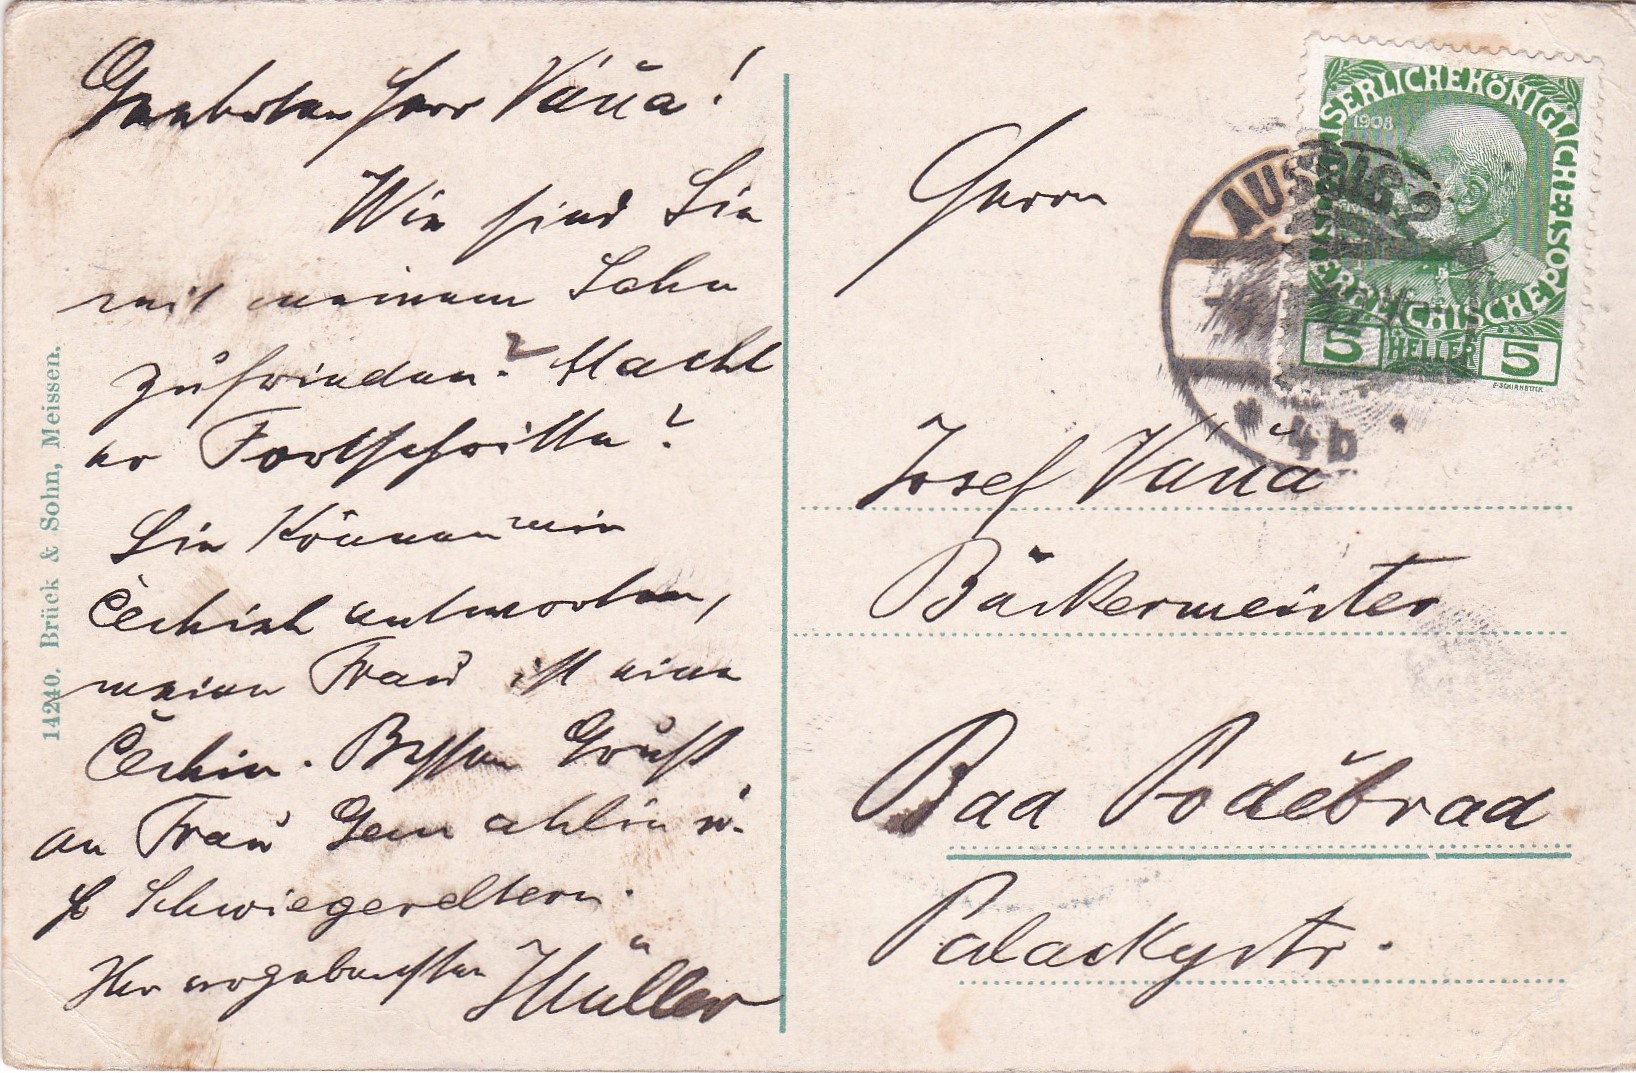 Geehrter Herr Váňa!
Wie sind Sie
mit meinem Sohn
zufrieden? Macht
er Fortschritte?
Sie können mir
Čechish antworten,
meine Frau ist eine
Čechin. Besten Gruß
an Frau Gemahlin u.
H Schwiegereltern.
Ihr ergebenster Müller
14240. Brück & Sohn, Meissen.
KAISERLICHEKÖNIGLICHE ÖSTERREICHISCHE POST
1908
5 HELLER 5
F. SCHIRNBÖCK
AUSSIG 2
* 4b *
Herrn
Josef Váňa
Bäckermeister
Bad Poděbrad
Palackystr.